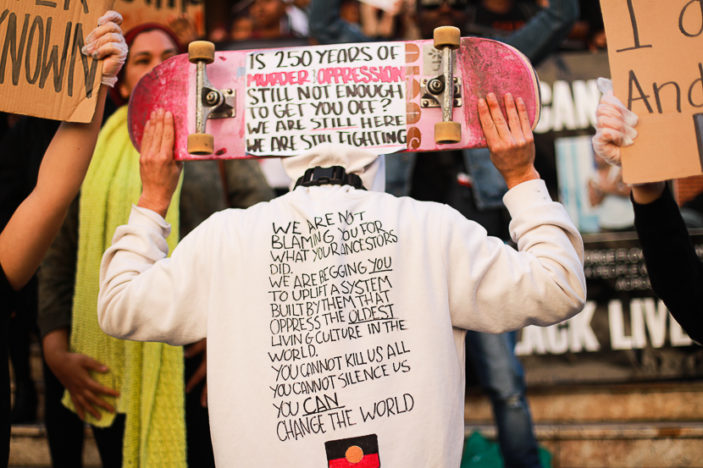 NOWN
IS 250 YEARS OF
MURDER OPPRESSION
STILL NOT ENOUGH
TO GET YOU OFF?
WE ARE STILL HERE
WE ARE STILL FIGHTING
I
And
WE ARE NOT
BLAMING YOU FOR
WHAT YOUR ANCESTORS
DID.
WE ARE BEGGING YOU
TO UPLIFT A SYSTEM
BUILT BY THEM THAT
OPPRESS THE OLDEST
LIVING CULTURE IN THE
WORLD.
YOU CANNOT KILL US ALL
YOU CANNOT SILENCE US
YOU CAN
CHANGE THE WORLD
CAN
ACK LIVE